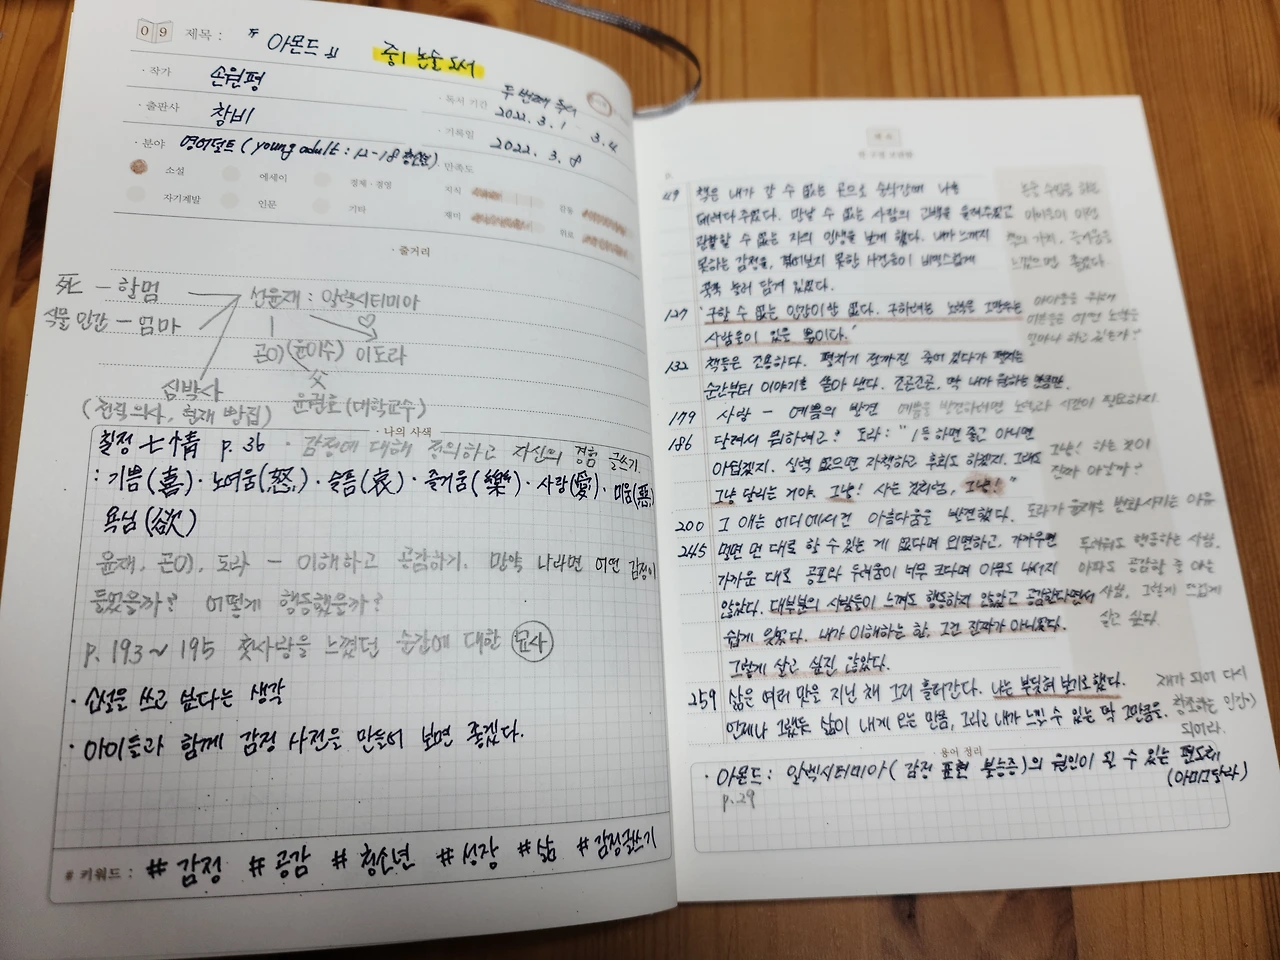 09 제목 : " 아몬드 " 중1 논술 도서
· 작가 손원평
· 출판사 창비
· 분야 영어덜트 (young adult : 12-18 청소년)
두 번째 독서
· 독서 기간 2022. 3. 1 - 3. 4
· 기록일 2022. 3. 8
· 만족도
소설 에세이 경제 · 경영
자기계발 인문 기타
지식 감동
재미 위로
· 줄거리
死 - 할멈
식물 인간 - 엄마
선윤재 : 알렉시티미아
곤이 (윤이수) 이도라
심박사
(전직 의사, 현재 빵집)
父
윤권호 (대학교수)
· 나의 사색
칠정 七情 p. 36 · 감정에 대해 정의하고 자신의 경험 글쓰기.
: 기쁨(喜) · 노여움(怒) · 슬픔(哀) · 즐거움(樂) · 사랑(愛) · 미움(惡)
욕심(欲)
윤재, 곤이, 도라 - 이해하고 공감하기. 만약 나라면 어떤 감정이
들었을까? 어떻게 행동했을까?
p. 193 ~ 195 첫사랑을 느꼈던 순간에 대한 묘사
· 소설을 쓰고 싶다는 생각
· 아이들과 함께 감정 사전을 만들어 보면 좋겠다.
# 키워드 : # 감정 # 공감 # 청소년 # 성장 # 삶 # 감정글쓰기
p.
49 책은 내가 갈 수 없는 곳으로 순식간에 나를
데려다 주었다. 만날 수 없는 사람의 고백을 들려주었고
관찰할 수 없는 자의 인생을 보게 했다. 내가 느끼지
못하는 감정들, 겪어보지 못한 사건들이 비밀스럽게
꾹꾹 눌러 담겨 있었다.
논술 수업을 하는
아이들이 이런
책의 가치, 즐거움을
느꼈으면 좋겠다.
127 '구할 수 없는 인간이란 없다. 구하려는 노력을 그만두는
사람들이 있을 뿐이다.'
아이들을 위해
어른들은 어떤 노력을
얼마나 하고 있는가?
132 책들은 조용하다. 펼치기 전까진 죽어 있다가 펼치는
순간부터 이야기를 쏟아 낸다. 조곤조곤, 딱 내가 원하는 만큼만.
179 사랑 - 예쁨의 발견 예쁨을 발견하려면 노력과 시간이 필요하지.
186 달려서 뭐하려고? 도라 : "1등 하면 좋고 아니면
아쉽겠지. 실력 없으면 자책하고 후회도 하겠지. 그래도
그냥 달리는 거야. 그냥! 사는 것처럼, 그냥!"
그냥! 하는 것이
진짜 아닐까?
200 그 애는 어디에서건 아름다움을 발견했다. 도라가 윤재를 변화시키는 이유
245 멀면 먼 대로 할 수 있는 게 없다며 외면하고, 가까우면
가까운 대로 공포와 두려움이 너무 크다며 아무도 나서지
않았다. 대부분의 사람들이 느껴도 행동하지 않았고 공감한다면서
쉽게 잊었다. 내가 이해하는 한, 그건 진짜가 아니었다.
그렇게 살고 싶진 않았다.
두려워도 행동하는 사람.
아파도 공감할 줄 아는
사람, 그렇게 뜨겁게
살고 싶다.
259 삶은 여러 맛을 지닌 채 그저 흘러간다. 나는 부딪혀 보기로 했다.
언제나 그랬듯 삶이 내게 오는 만큼, 그리고 내가 느낄 수 있는 딱 그만큼을.
되어라.
· 용어 정리
· 아몬드 : 알렉시티미아 (감정 표현 불능증)의 원인이 될 수 있는 편도체
p.29 (아미그달라)